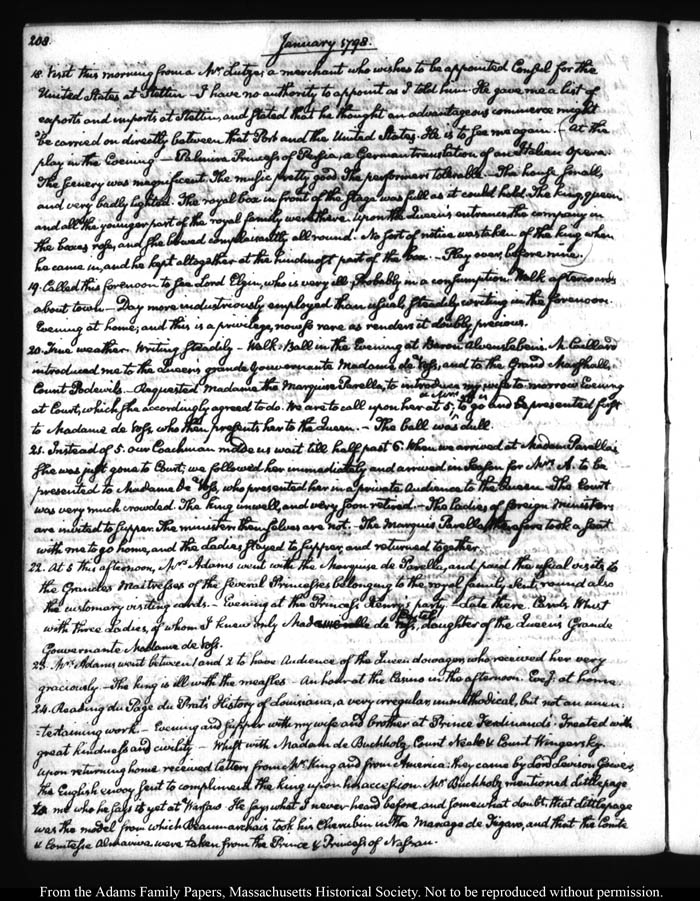 208.
January 1798.
18. Visit this morning from a Mr. Lutze; a merchant who wishes to be appointed Consul for the
United States at Stettin — I have no authority to appoint as I told him. He gave me a list of
exports and imports at Stettin, and stated that he thought an advantageous commerce might
be carried on directly between that Port and the United States. He is to see me again. — At the
play in the Evening — Palmire Princess of Persia, a German translation of an Italian Opera.
The scenery was magnificent. The music pretty good. The performers tolerable. — The house small,
and very badly lighted. The royal box in front of the stage was full as it could hold. The king, queen
and all the younger part of the royal family were there. Upon the Queen's entrance the company in
the boxes rose, and she bowed complaisantly all round. No sort of notice was taken of the king when
he came in, and he kept altogether at the hindmost part of the box. — Play over, before nine.
19. Called this forenoon to see Lord Elgin, who is very ill, probably in a consumption. Walk afterwards
about town — Day more industriously employed than usual, steadily writing in the forenoon.
Evening at home; and this is a privilege, now so rare as renders it doubly precious.
20. Fine weather. Writing steadily — Walk. Ball in the Evening at Baron Alvensleben's. M. Caillard
introduced me to the Queen's grande Gouvernante Madame de Voss, and to the Grand Marshall,
Count Podewils. — Requested Madame the Marquise Parella, to introduce my wife to-morrow Evening
at Court, which she accordingly agreed to do. We are to call upon her at 5, to go and be presented first
to Madame de Voss who then presents her to the Queen. — The ball was dull.
21. Instead of 5. our Coachman made us wait till half past 6. When we arrived at Madam Parella's
she was just gone to Court; we followed her immediately and arrived in season for Mrs. A. to be
presented to Madame de Voss, who presented her in a private Audience to the Queen. The Court
was very much crowded. The king unwell, and very soon retired. — The Ladies of foreign Ministers
are invited to supper. The ministers themselves are not. — The Marquis Parella therefore took a seat
with me to go home, and the Ladies stayed to supper, and returned together.
22. At 5 this afternoon, Mrs. Adams went with the Marquise de Parella, and paid the usual visits to
the Grandes Maitresses of the several Princesses belonging to the royal family. Sent round also
the customary visiting cards. — Evening at the Princess Henry's party. — Late there. Cards. Whist
with three Ladies, of whom I knew only de Voss, daughter of the Queen's Grande
Gouvernante Madame de Voss.
23. Mrs. Adams went between 1 and 2 to have Audience of the Queen dowager, who received her very
graciously. — The king is ill with the measles — An hour at the in the afternoon. Eveg. at home.
24. Reading du Page du Prat's History of Louisiana, a very irregular, unmethodical, but not an unen:
=tertaining work — Evening and supper with my wife and brother at Prince Ferdinand's. Treated with
great kindness and civility — Whist with Madam de Buchholz, Count Neale & Count Wingersky.
Upon returning home received letters from Mr. King and from America: they came by Lord Levison Gower,
the English envoy sent to compliment the king upon his accession. Mr. Buchholz mentioned Littlepage
to me who he says is yet at Warsaw. He says what I never heard before, and somewhat doubt, that Littlepage
was the model from which Beaumarchais took his Cherubin in the Mariage de Figaro, and that the Comte
& Comtesse Almaviva were taken from the Prince & Princess of Nassau.
From the Adams Family Papers, Massachusetts Historical Society. Not to be reproduced without permission.